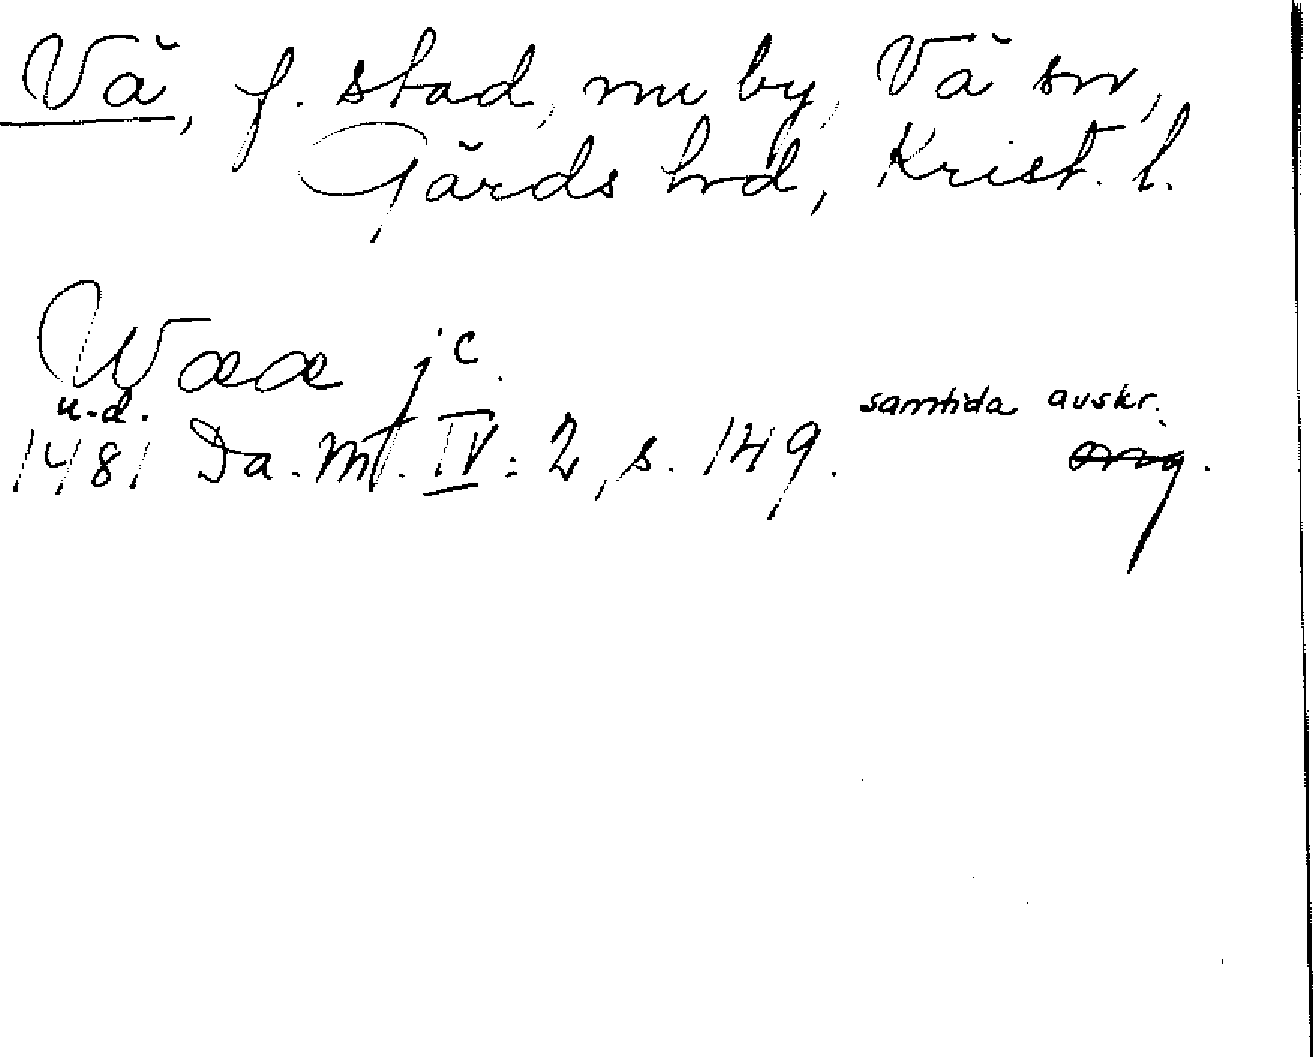 Vä, f. stad, nu by, Vä sn,
Gärds hrd, Krist. l.
Wææ jc.
u.d. samtida avskr.
1481 Da. Mt. IV:2, s. 149. orig.